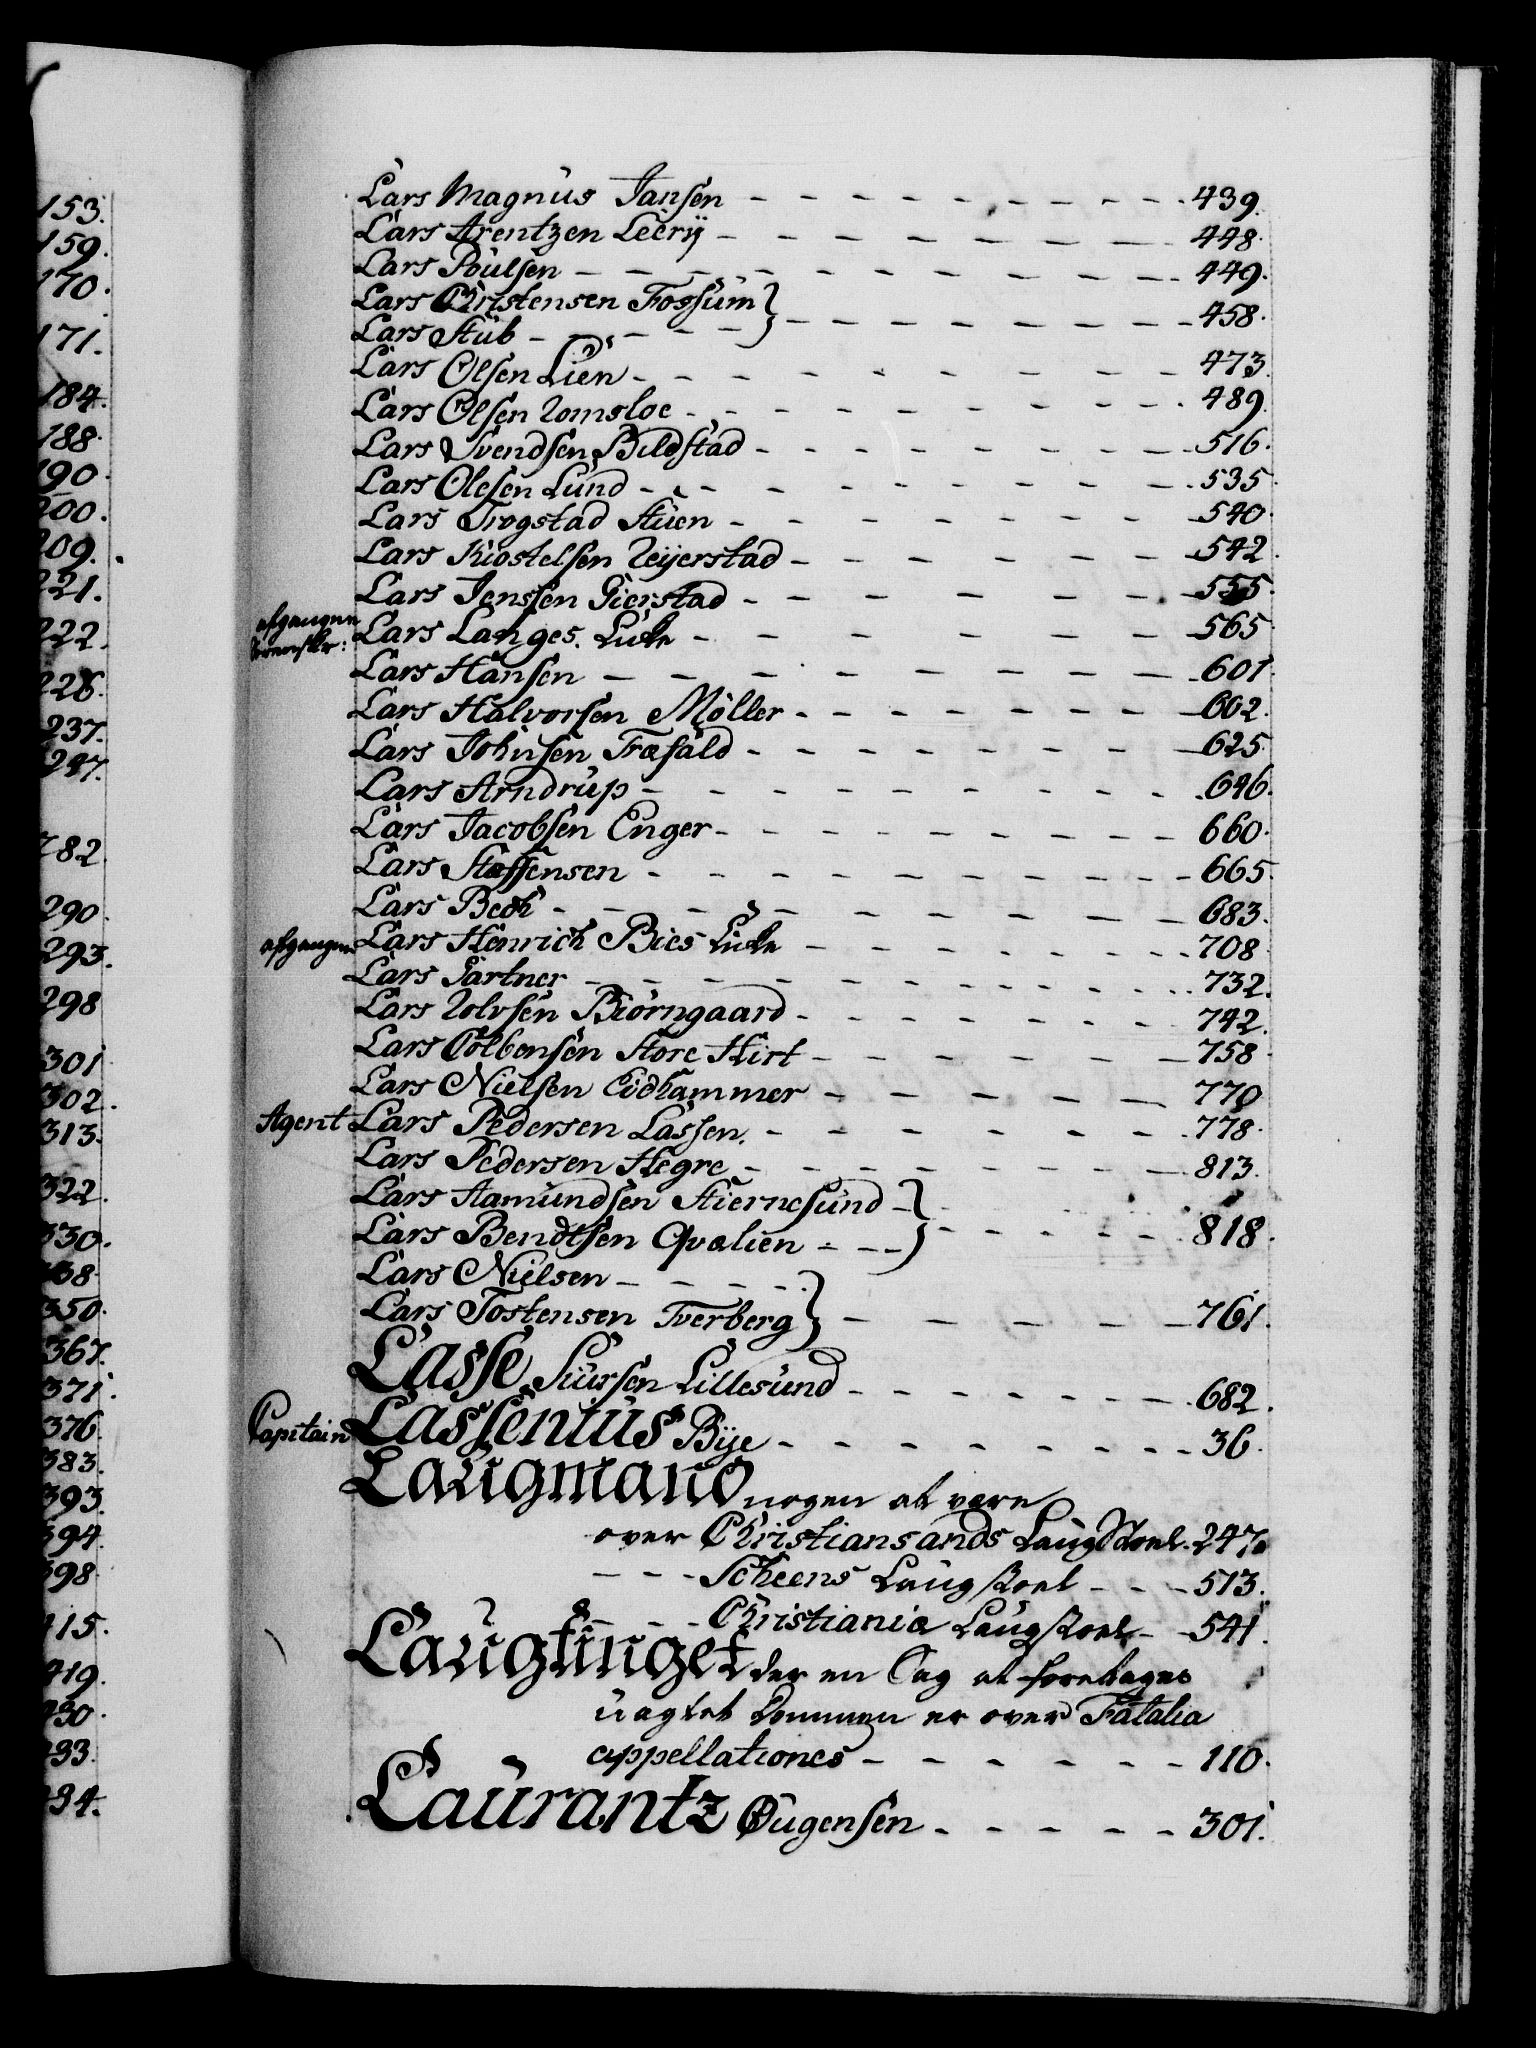 153.
159.
170.
171.
184.
188.
190.
200.
209.
221.
222.
226.
237.
247.
782.
290.
293.
298
301
302.
313.
322.
330.
338.
350.
367.
371.
376.
383.
393.
394.
398.
415.
419.
430.
433.
434.
Lars Magnus Jansen - - - - - - - - - 439.
Lars Arentzen Leery - - - - - - - - 448.
Lars Poulsen - - - - - - - - - - 449.
Lars Christensen Fossum }
Lars Stub - - - - } - - - - - - - 458.
Lars Olsen Lien - - - - - - - - - 473.
Lars Olsen Romsloe - - - - - - - - - 489.
Lars Svendsen Bildstad - - - - - - - - 516.
Lars Olesen Lund - - - - - - - - - 535.
Lars Trogstad Stuen - - - - - - - - 540.
Lars Kiostelsen Reyerstad - - - - - - - 542.
Lars Jenssen Gierstad - - - - - - - 555.
afgangne Lars Langes Enke - - - - - - - - 565
Lars Hansen - - - - - - - - - 601.
Lars Halvorsen Møller - - - - - - - - 602.
Lars Johnsen Træfald - - - - - - - - 625.
Lars Arndrup - - - - - - - - - - 646.
Lars Jacobsen Enger - - - - - - - - - 660.
Lars Steffensen - - - - - - - - - - 665.
Lars Bech - - - - - - - - - - 683.
afgangne Lars Henrich Bies Enke - - - - - - - 708.
Lars Gartner - - - - - - - - - - 732.
Lars Rolvsen Biørngaard - - - - - - - 742.
Lars Colbensen Store Hirt - - - - - - 758.
Lars Nielsen Eidhammer - - - - - - 770
Agent Lars Pedersen Lassen. - - - - - - - 778.
Lars Pedersen Hegre - - - - - - - - 813.
Lars Aamundsen Stiernesund - }
Lars Bendtsen Qvalien - - - } - - - - - 818.
Lars Nielsen - - - - - }
Lars Tostensen Tverberg } - - - - - 761.
Lasse Siursen Lillesund - - - - - - - 682.
Capitain Lassenius Bye - - - - - - - - 36.
Laugmand nogen at være
over Christiansands Laugstoel. 247.
- - - Scheens Laugstoel - - - 513.
- - - Christiania Laugstoel - - 541.
Laugtinget der en Sag at foretages
uagtet Dommen er over Fatalia
appellationes - - - - - - 110.
Laurantz Øugensen - - - - - 301.